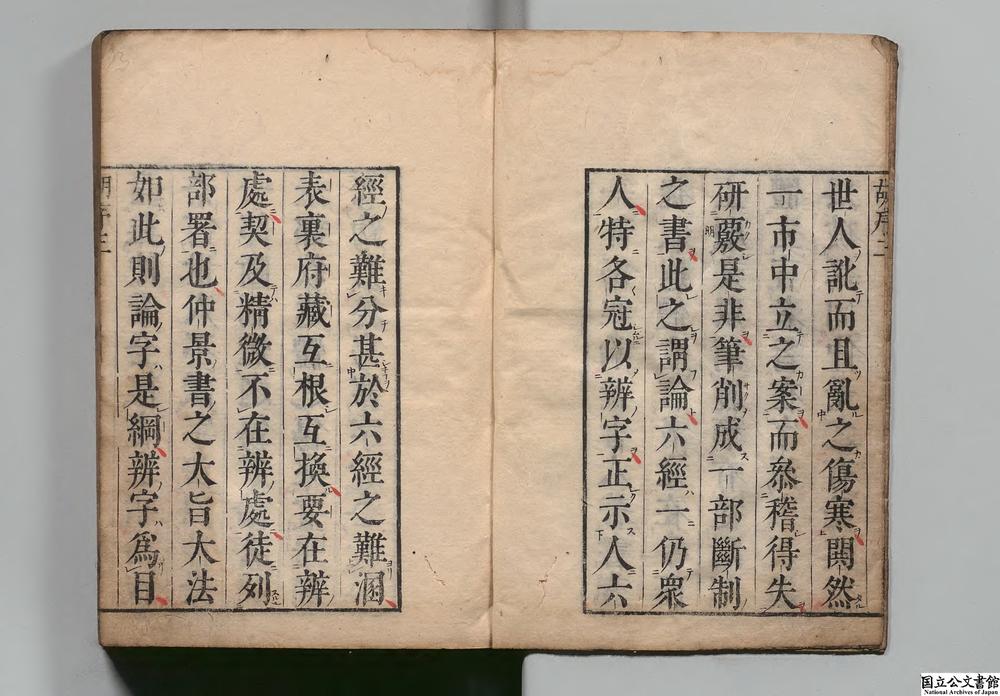 胡序二
世人訛而且亂之傷寒鬨然
一市中立之案而叅稽得失
研覈是非筆削成一部斷制
之書此之謂論六經一仍衆
人特各冠以辨字正示人六
經之難分甚於六經之難溷
表裏府藏互根互換要在辨
處契及精微不在辨處徒列
部署也仲景書之大旨大法
如此則論字是綱辨字爲目
胡序三
国立公文書館
National Archives of Japan